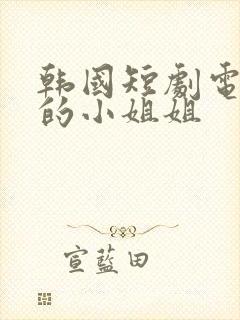 韩國短劇電
的小姐姐
宣藍田